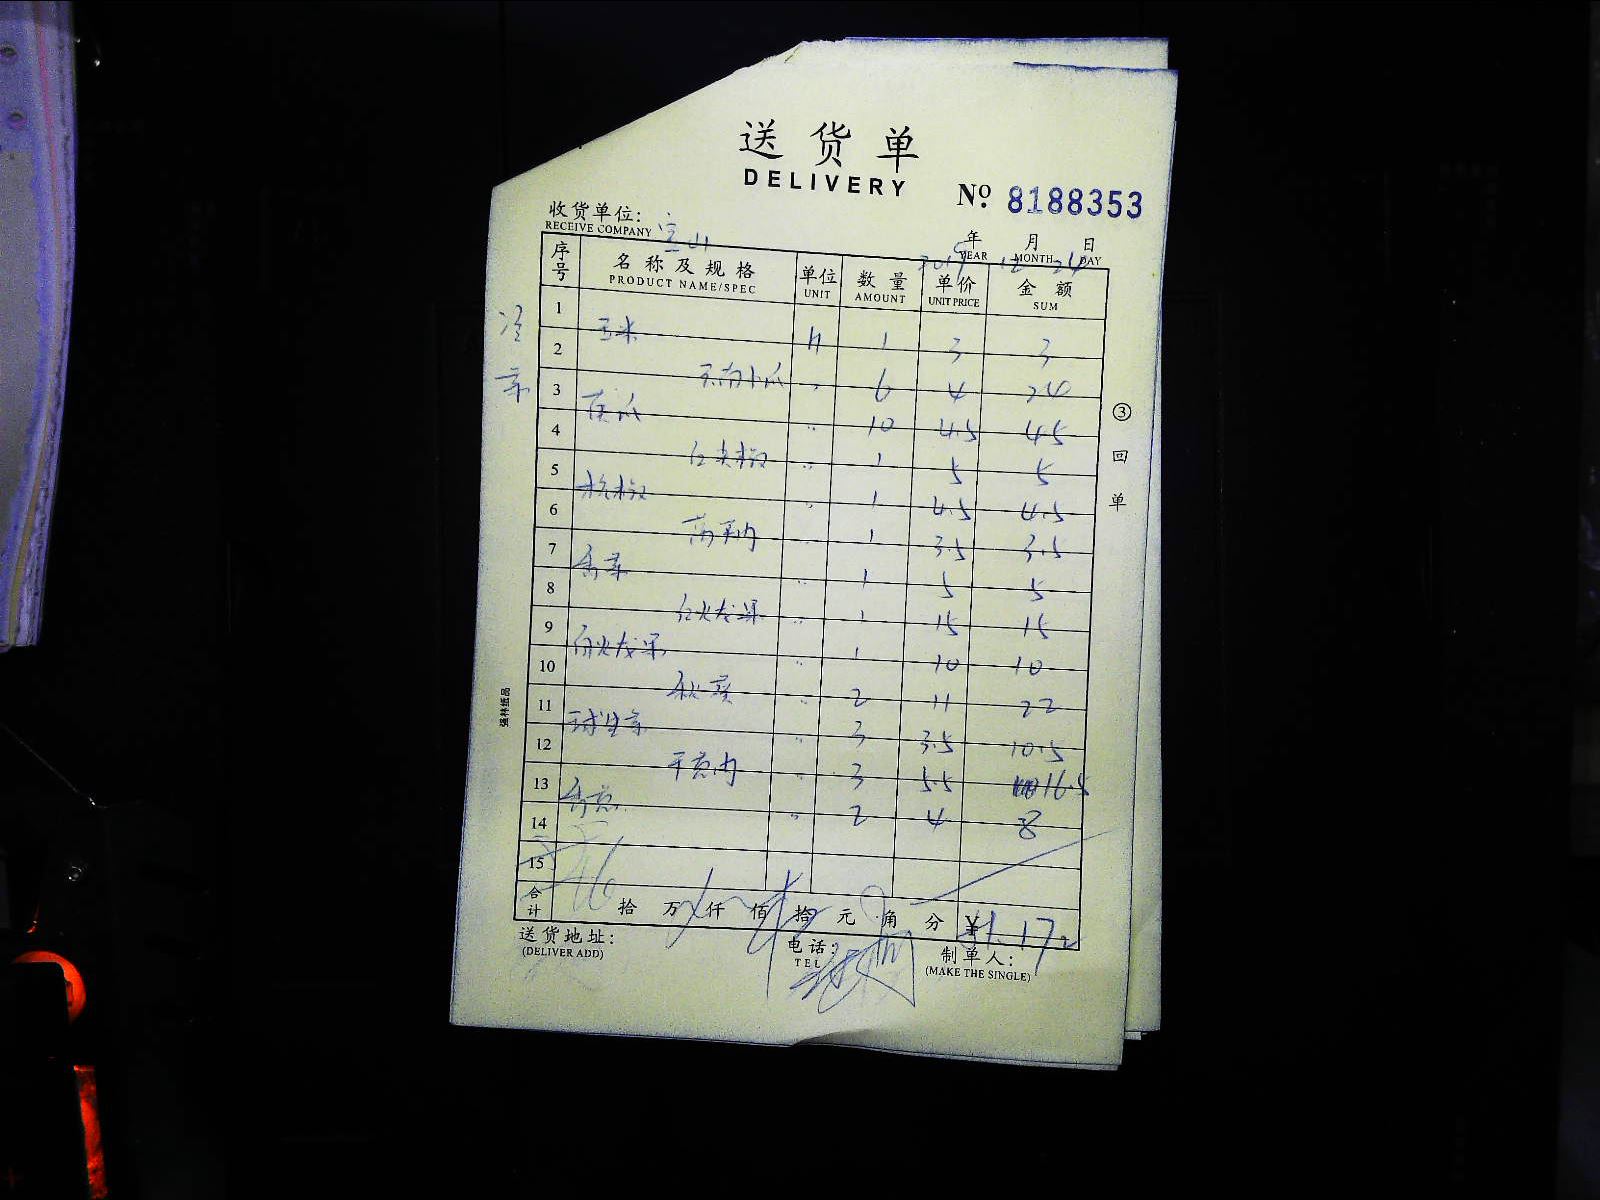 送货单
DELIVERY
No. 8188353
收货单位: 宝山
RECEIVE COMPANY
2019 年 12 月 24 日
YEAR MONTH DAY
序号 名称及规格 单位 数量 单价 金额
PRODUCT NAME/SPEC UNIT AMOUNT UNIT PRICE SUM
冷菜
1 玉米 斤 1 3 3
2 云南小瓜 〃 6 4 24
3 黄瓜 〃 10 4.5 45
4 红尖椒 〃 1 5 5
5 杭椒 〃 1 4.5 4.5
6 1 3.5 3.5
7 香菜 〃 1 5 5
8 红火龙果 〃 1 15 15
9 白火龙果 〃 1 10 10
10 秋葵 〃 2 11 22
11 球生菜 〃 3 3.5 10.5
12 3 5.5 16.5
13 香葱 〃 2 4 8
14
15
合计 拾 万 仟 佰 拾 元 角 分 ¥ 172
送货地址:
(DELIVER ADD)
电话:
TEL
制单人:
(MAKE THE SINGLE)
③回单
强林纸品